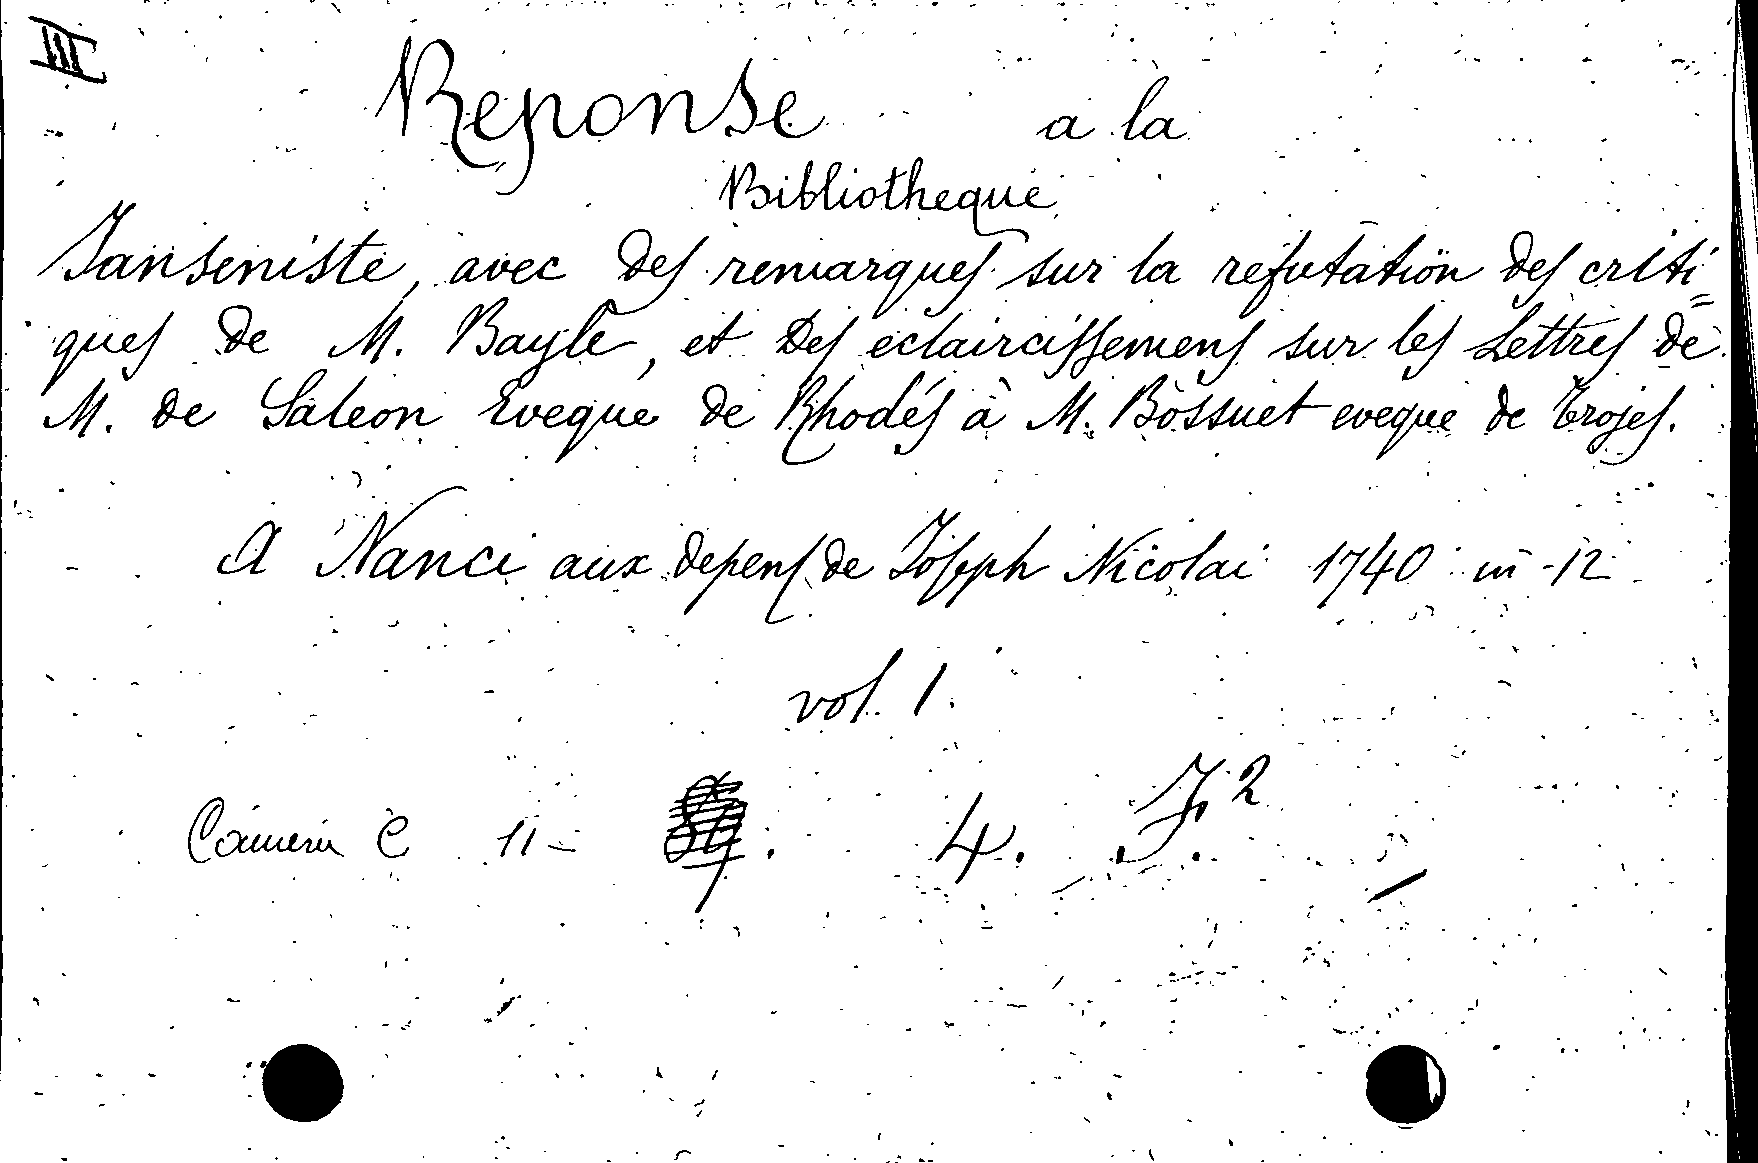 III
Reponse a la
Bibliotheque
Janseniste, avec des remarques sur la refutation des criti=
ques de M. Bayle, et des eclaircissemens sur les Lettres de
M. de Saleon Eveque de Rhodés à M. Bossuet eveque de Trojes.
A Nanci aux depens de Joseph Nicolai 1740 in-12
vol. 1.
C 11- 4. J.2